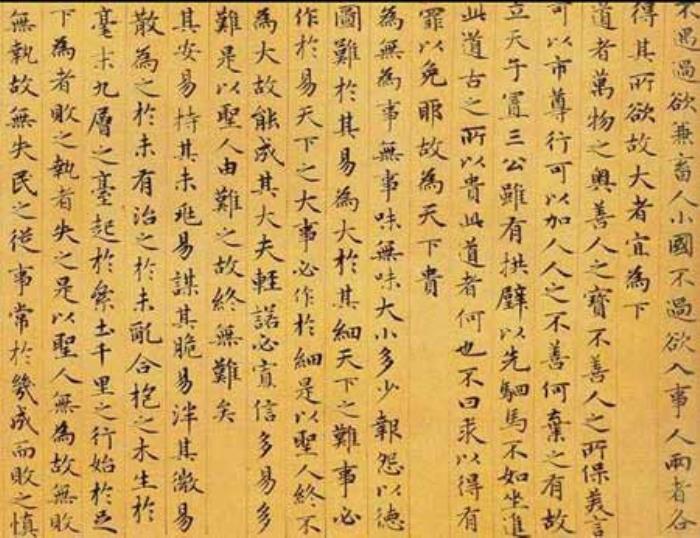 不過過欲兼畜人小國不過欲入事人兩者各
得其所欲故大者宜為下
道者萬物之奧善人之寶不善人之所保美言
可以市尊行可以加人人之不善何棄之有故
立天子置三公雖有拱璧以先駟馬不如坐進
此道古之所以貴此道者何也不曰求以得有
罪以免耶故為天下貴
為無為事無事味無味大小多少報怨以德
圖難於其易為大於其細天下之難事必
作於易天下之大事必作於細是以聖人終不
為大故能成其大夫輕諾必寡信多易多
難是以聖人由難之故終無難矣
其安易持其未兆易謀其脆易泮其微易
散為之於未有治之於未亂合抱之木生於
毫末九層之臺起於絫土千里之行始於足
下為者敗之執者失之是以聖人無為故無敗
無執故無失民之從事常於幾成而敗之慎